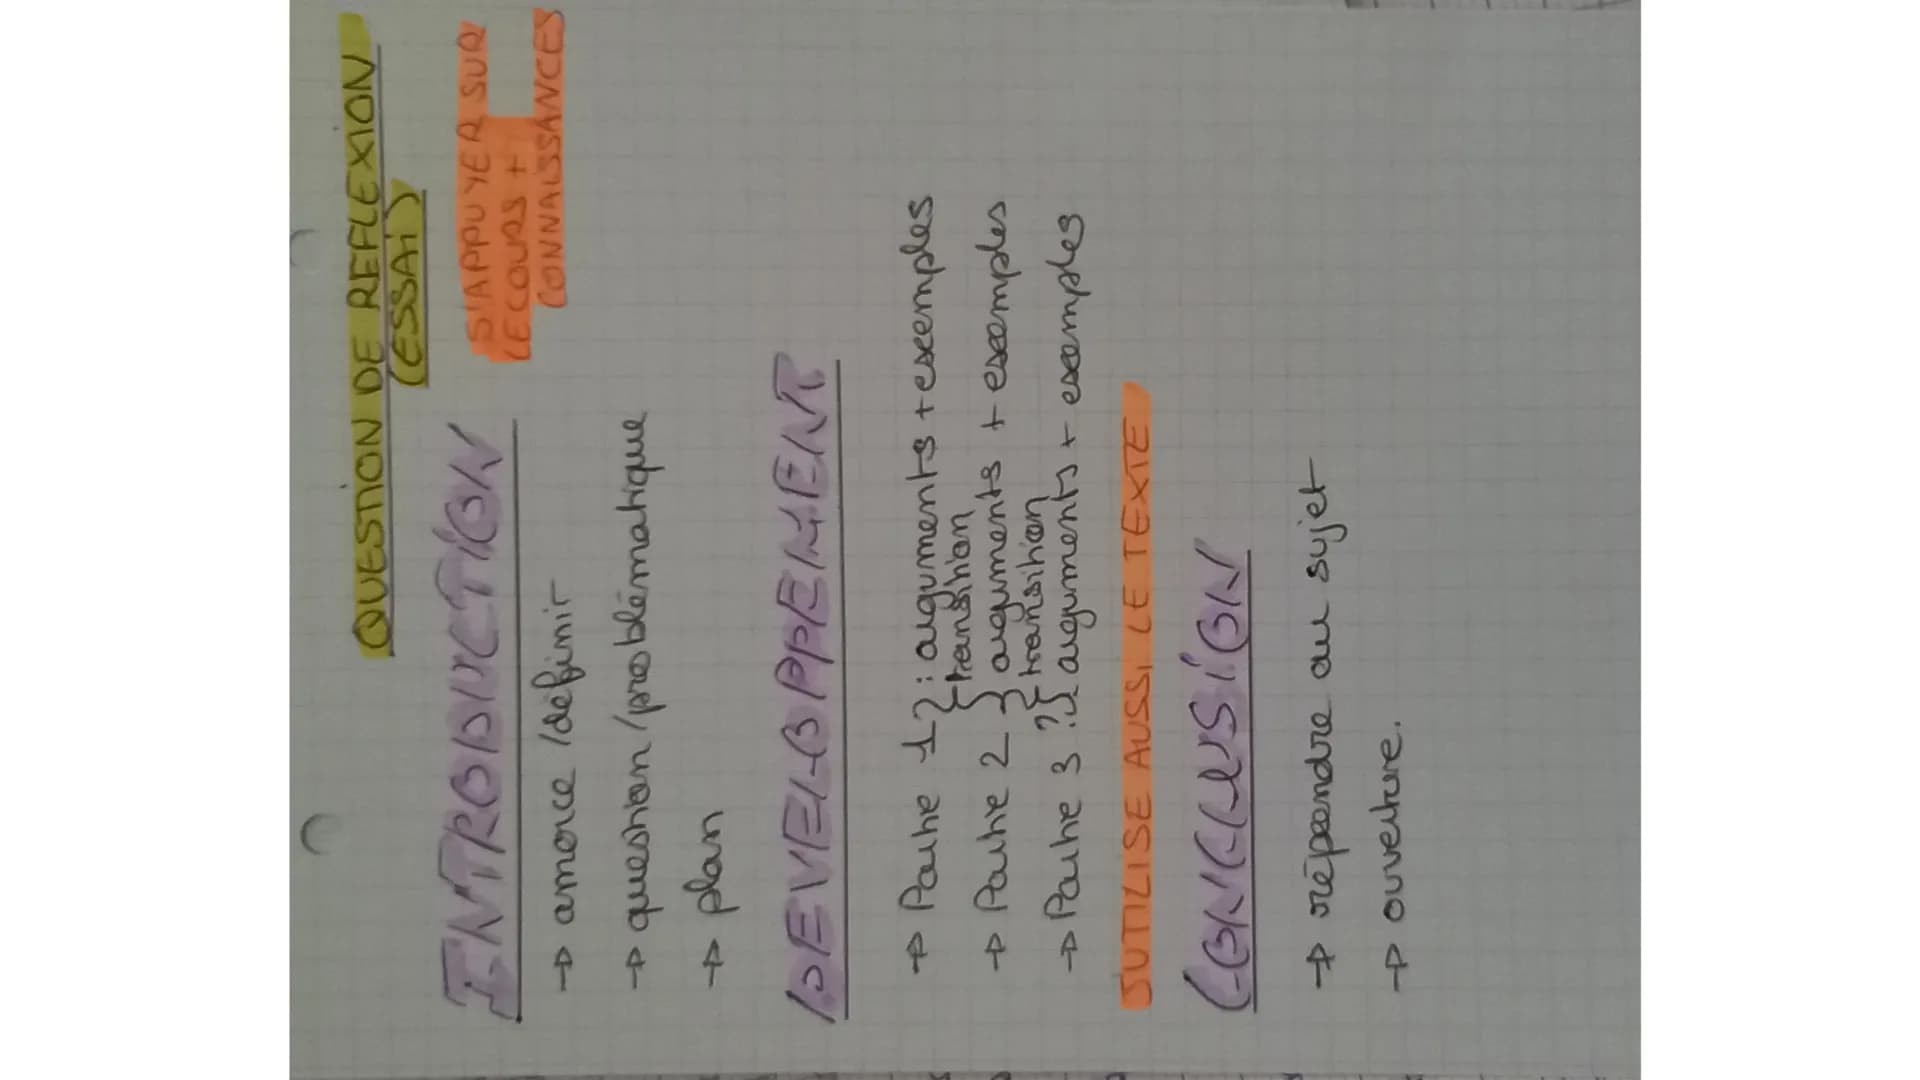 QUESTION DE REFLEXION
(ESSAi)
S'APPUYER SUR
LE COURS +
CONNAISSANCES
INTRODUCTION
→ amorce / définir
→ question / problématique
→ plan
DEVELOPPEMENT
→ Partie 1 } : arguments + exemples
{ transition
→ Partie 2 } arguments + exemples
{ transition
→ Partie 3 ? } arguments + exemples
UTILISE AUSSI LE TEXTE
CONCLUSiON
→ répondre au sujet
→ ouverture.